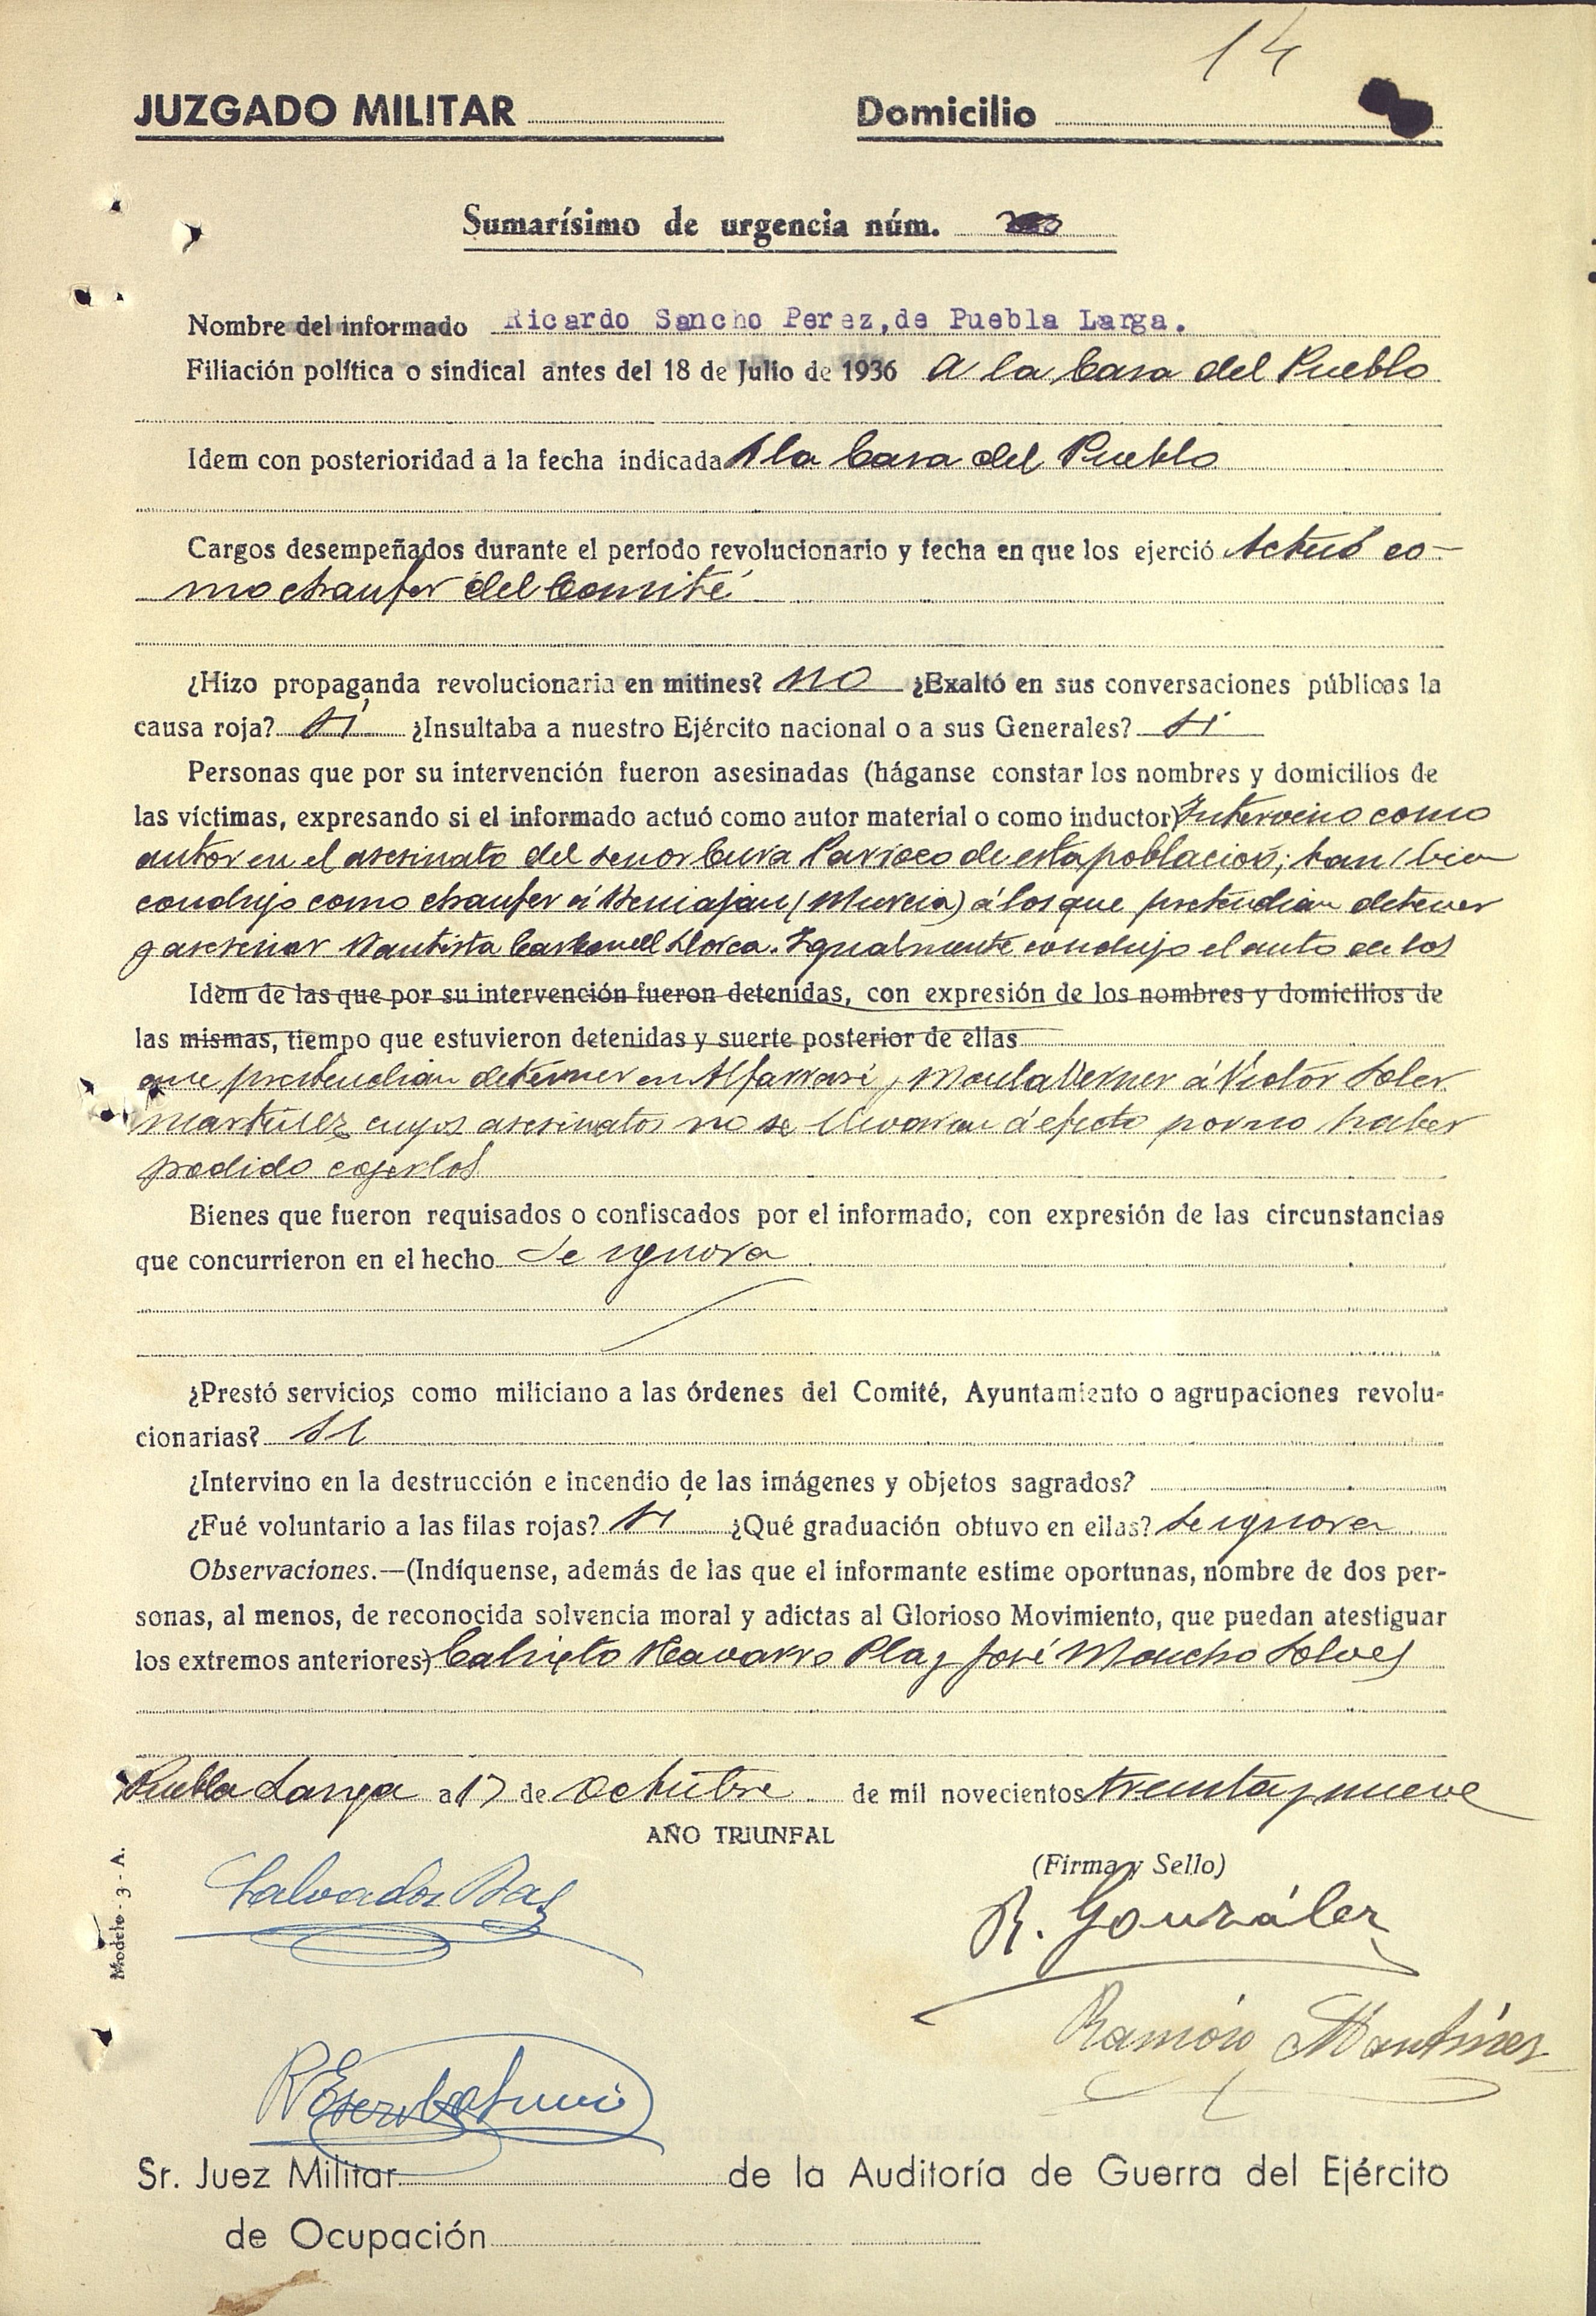 14
JUZGADO MILITAR
Domicilio
Sumarísimo de urgencia núm.
Nombre del informado Ricardo Sancho Perez,de Puebla Larga.
Filiación política o sindical antes del 18 de Julio de 1936 A la Casa del Pueblo
Idem con posterioridad a la fecha indicada A la Casa del Pueblo
Cargos desempeñados durante el período revolucionario y fecha en que los ejerció Actuó co-
mo chaufer del Comité
¿Hizo propaganda revolucionaria en mitines? no ¿Exaltó en sus conversaciones públicas la
causa roja? sí ¿Insultaba a nuestro Ejército nacional o a sus Generales? sí
Personas que por su intervención fueron asesinadas (háganse constar los nombres y domicilios de
las víctimas, expresando si el informado actuó como autor material o como inductor) Intervino como
autor en el asesinato del señor Cura Párroco de esta población; tambien
condujo como chaufer á Beniaján (Murcia) á los que pretendian detener
y asesinar Bautista Carbonell Llorca. Igualmente condujo el auto de los
Idem de las que por su intervención fueron detenidas, con expresión de los nombres y domicilios de
las mismas, tiempo que estuvieron detenidas y suerte posterior de ellas
que pretendian detener en Alfarrasí y Montaverner á Víctor Soler
Martínez cuyos asesinatos no se llevaron á efecto por no haber
podido cojerlos
Bienes que fueron requisados o confiscados por el informado, con expresión de las circunstancias
que concurrieron en el hecho Se ignora
¿Prestó servicios como miliciano a las órdenes del Comité, Ayuntamiento o agrupaciones revolu-
cionarias? Sí
¿Intervino en la destrucción e incendio de las imágenes y objetos sagrados?
¿Fué voluntario a las filas rojas? sí ¿Qué graduación obtuvo en ellas? se ignora
Observaciones.—(Indíquense, además de las que el informante estime oportunas, nombre de dos per-
sonas, al menos, de reconocida solvencia moral y adictas al Glorioso Movimiento, que puedan atestiguar
los extremos anteriores) Calixto Navarro Pla y José Moucho Solves
Puebla Larga a 17 de Octubre de mil novecientos treinta y nueve
AÑO TRIUNFAL
(Firma y Sello)
Salvador Bas
R. González
Ramón Martínez
Modelo - 3 - A.
Sr. Juez Militar de la Auditoría de Guerra del Ejército
de Ocupación